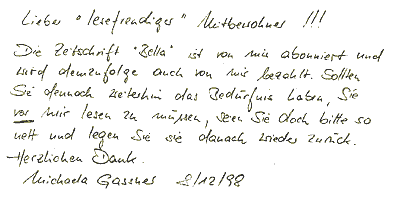 Lieber "lesefreudiger" Mitbewohner !!!
Die Zeitschrift "Bella" ist von mir abonniert und
wird demzufolge auch von mir bezahlt. Sollten
Sie dennoch weiterhin das Bedürfnis haben, Sie
vor mir lesen zu müssen, seien Sie doch bitte so
nett und legen Sie sie danach wieder zurück.
Herzlichen Dank.
Michaela Gassner 8/12/98